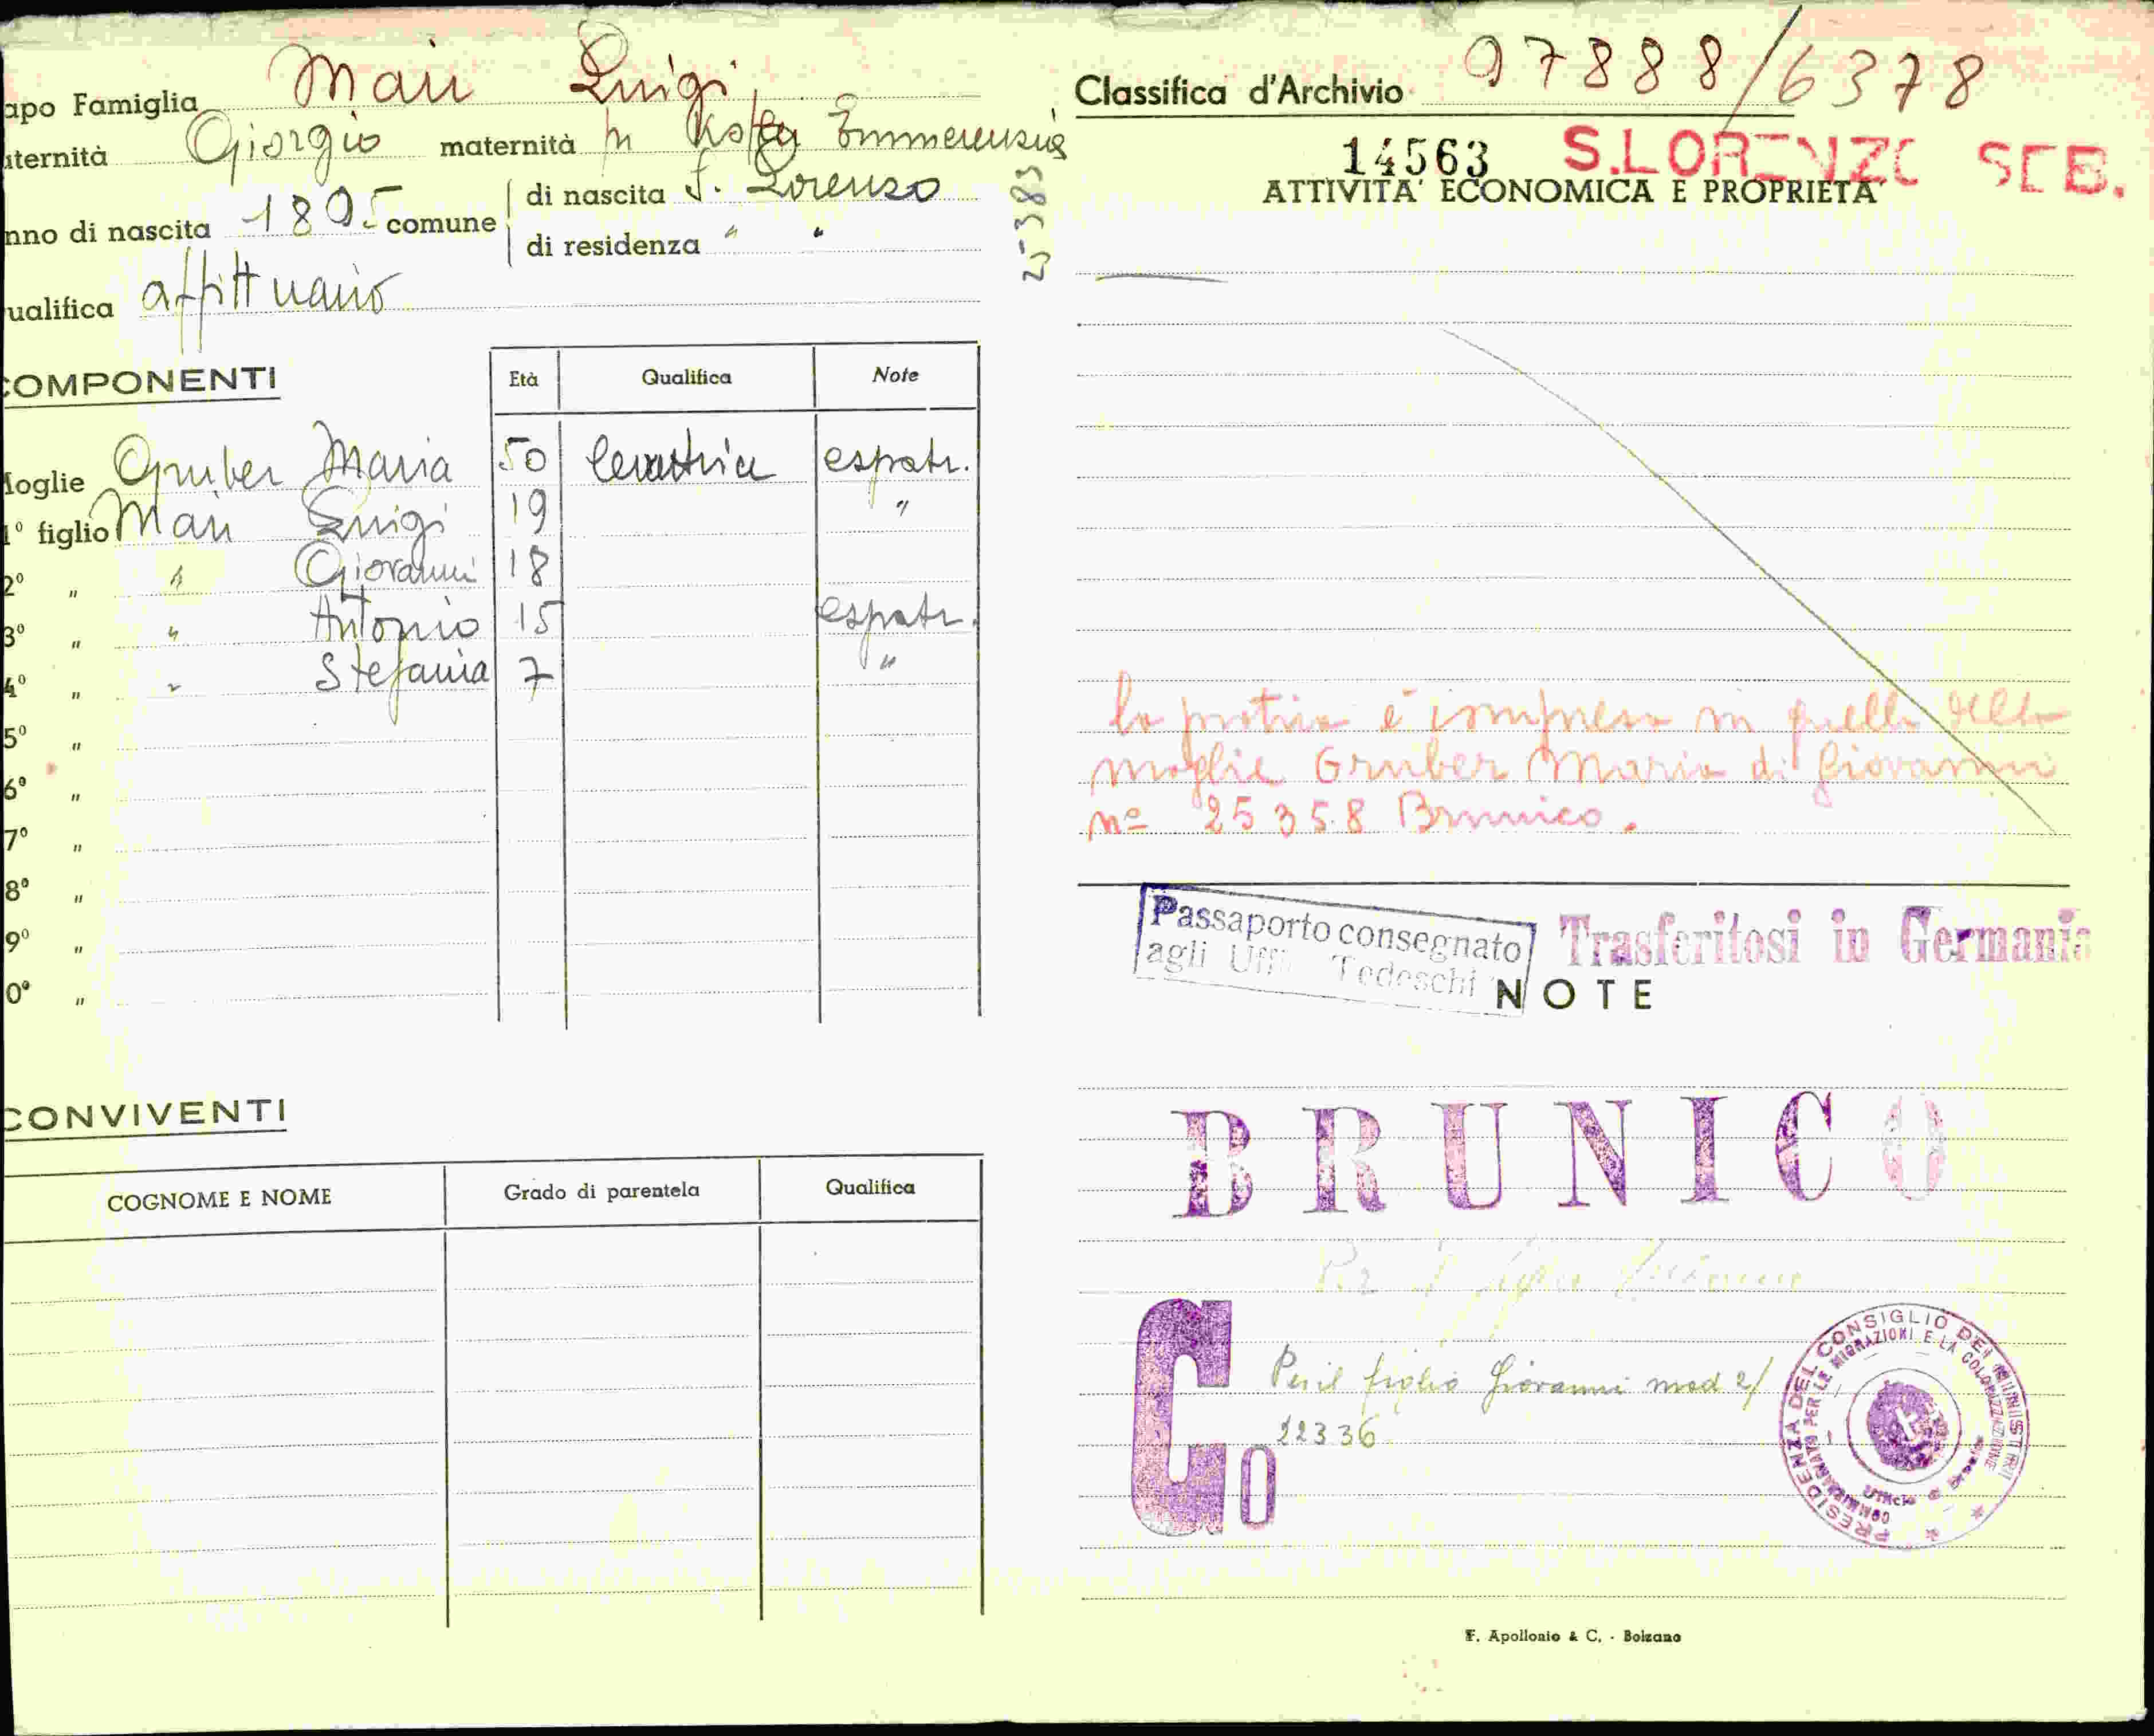 apo Famiglia Mair Luigi
aternità Giorgio maternità fu Kofler Emmerenzia
nno di nascita 1895 comune di nascita S. Lorenzo
di residenza " "
ualifica affittuario
COMPONENTI
Età Qualifica Note
Moglie Gruber Maria 50 levatrice espatr.
1° figlio Mair Luigi 19 "
2° " " Giovanni 18
3° " " Antonio 15 espatr.
4° " " Stefania 7 "
5° "
6° "
7° "
8° "
9° "
0° "
CONVIVENTI
COGNOME E NOME Grado di parentela Qualifica
25383
Classifica d'Archivio 97888/6378
14563 S.LORENZO SEB.
ATTIVITA' ECONOMICA E PROPRIETA'
la pratica è compresa in quella della
moglie Gruber Maria di Giovanni
n° 25358 Brunico.
Passaporto consegnato
agli Uffi Tedeschi
Trasferitosi in Germania
NOTE
BRUNICO
Co
Per il figlio Giovanni mod 2/
22336
PRESIDENZA DEL CONSIGLIO DEI MINISTRI
COMMISSARIATO PER LE MIGRAZIONI E LA COLONIZZAZIONE
F. Apollonio & C. - Bolzano